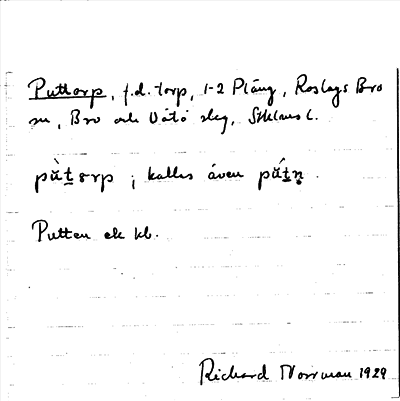 Puttorp, f.d. torp, 1-2 Pläng, Roslags Bro
sn, Bro och Vätö skg, Sthlms l.
pŭ̀t̲ɔrp ; kallas även pŭ́t̲n̥.
Putten ek kb.
Richard Norrman 1929